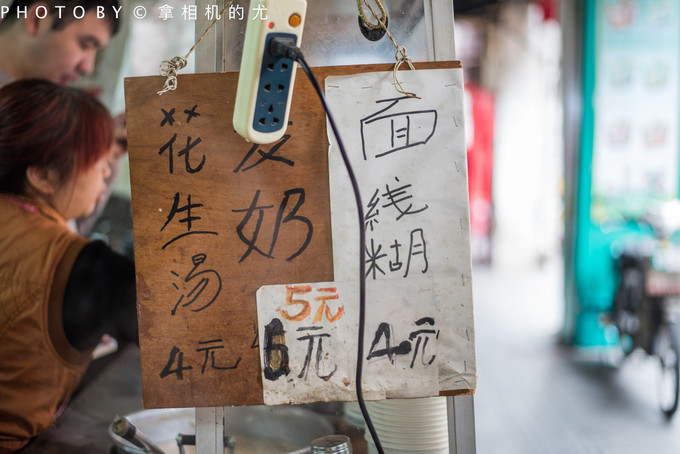 PHOTO BY © 拿相机的尤
花生汤
4元
奶
5元
元
面线糊
4元